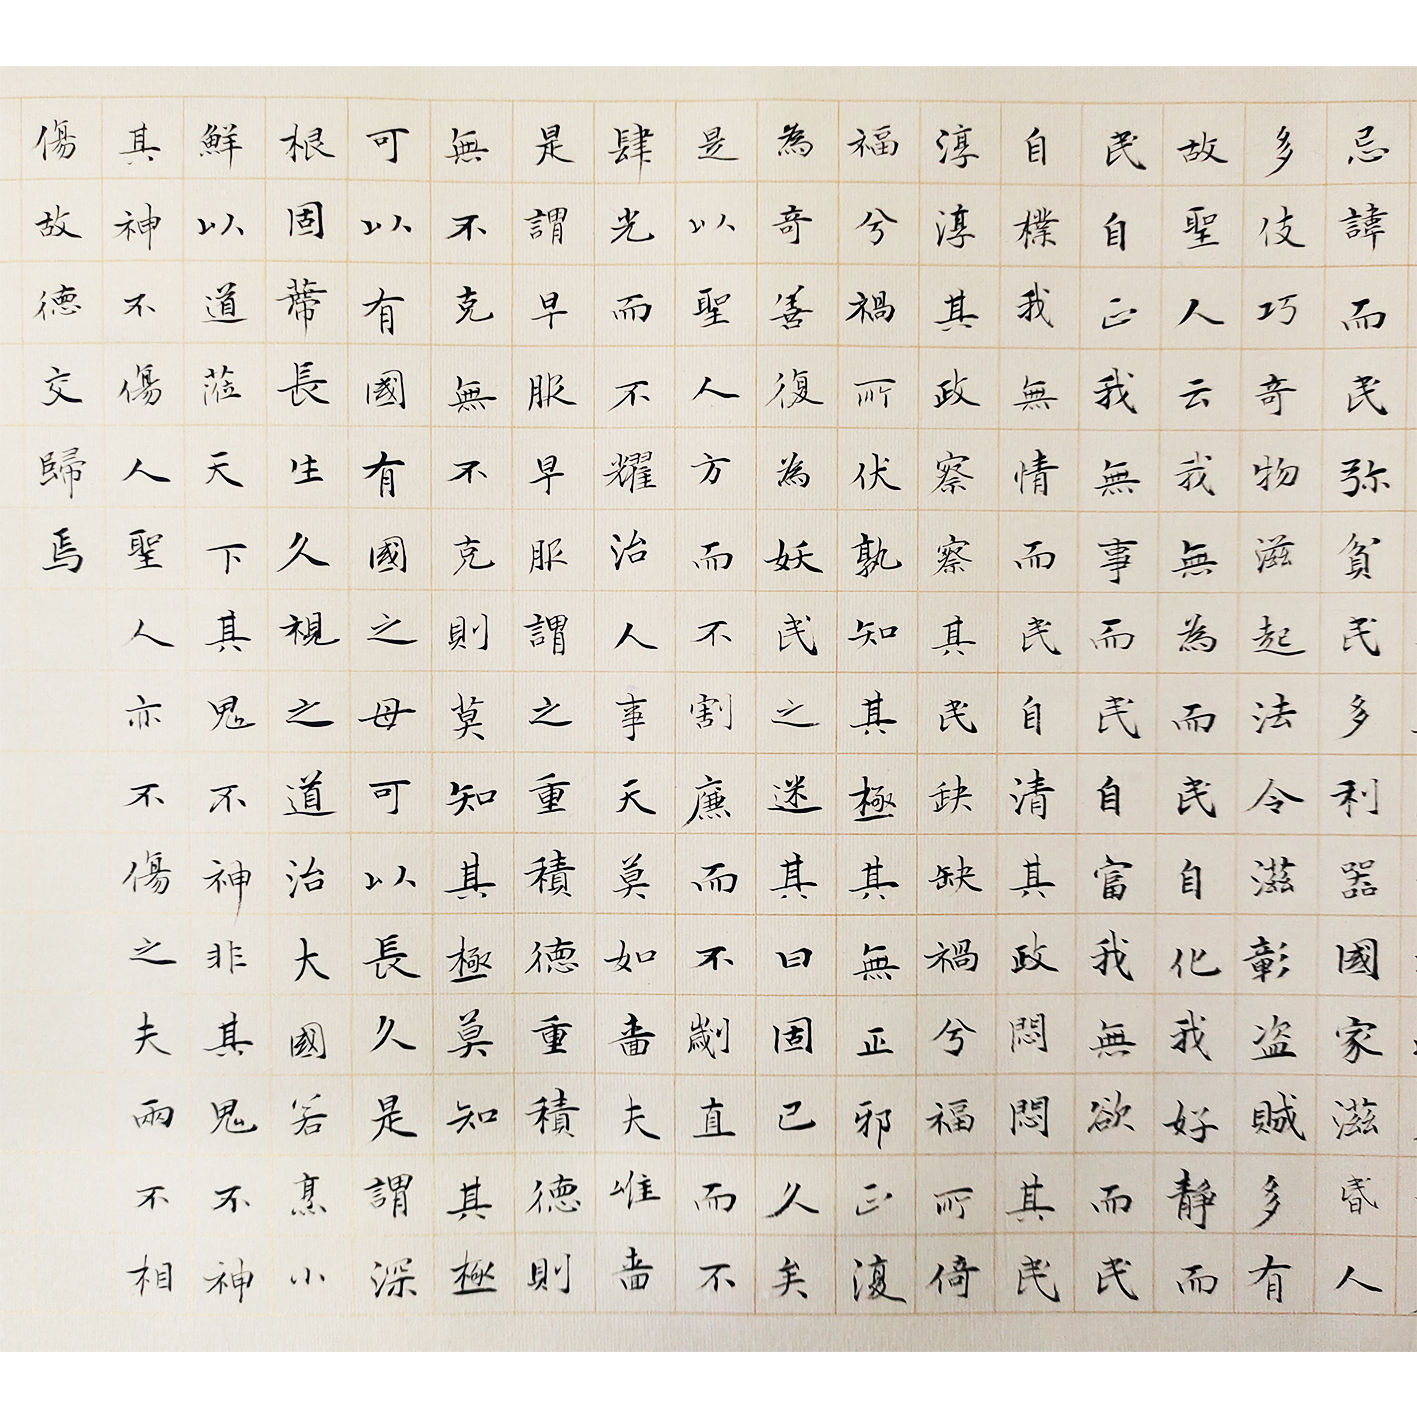 忌諱而民弥貧民多利器國家滋昏人
多伎巧奇物滋起法令滋彰盗賊多有
故聖人云我無為而民自化我好靜而
民自正我無事而民自富我無欲而民
自樸我無情而民自清其政悶悶其民
淳淳其政察察其民缺缺禍兮福所倚
福兮禍所伏孰知其極其無正邪正復
為奇善復為妖民之迷其日固已久矣
是以聖人方而不割廉而不劌直而不
肆光而不耀治人事天莫如嗇夫唯嗇
是謂早服早服謂之重積德重積德則
無不克無不克則莫知其極莫知其極
可以有國有國之母可以長久是謂深
根固蒂長生久視之道治大國若烹小
鮮以道蒞天下其鬼不神非其鬼不神
其神不傷人聖人亦不傷之夫兩不相
傷故德交歸焉